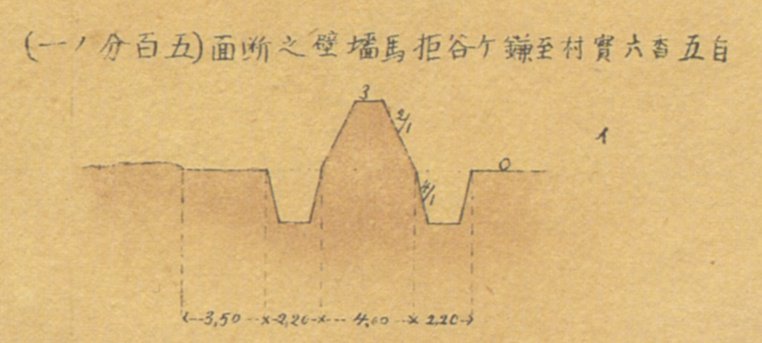 自五香六實村至鎌ケ谷拒馬墻壁之断面(五百分ノ一)
3
2/1
イ
0
4/1
3,50 2,20 4,00 2,20